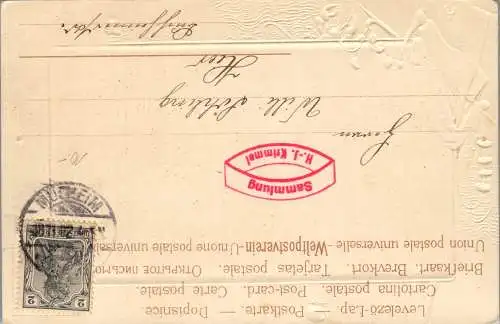 Levelező-Lap — Postkarte. — Dopisnice.
Cartolina postale. Post-card. Carte postale.
Briefkaart. Brevkort. Tarjetas postale. Открытое письмо
Union postale universelle-Weltpostverein-Unione postale universale
2 2
MÜLHEIM
Sammlung
H.-J. Krimmel
10.-
Herrn
Willi Söhling
Hier
Buchheimerstr